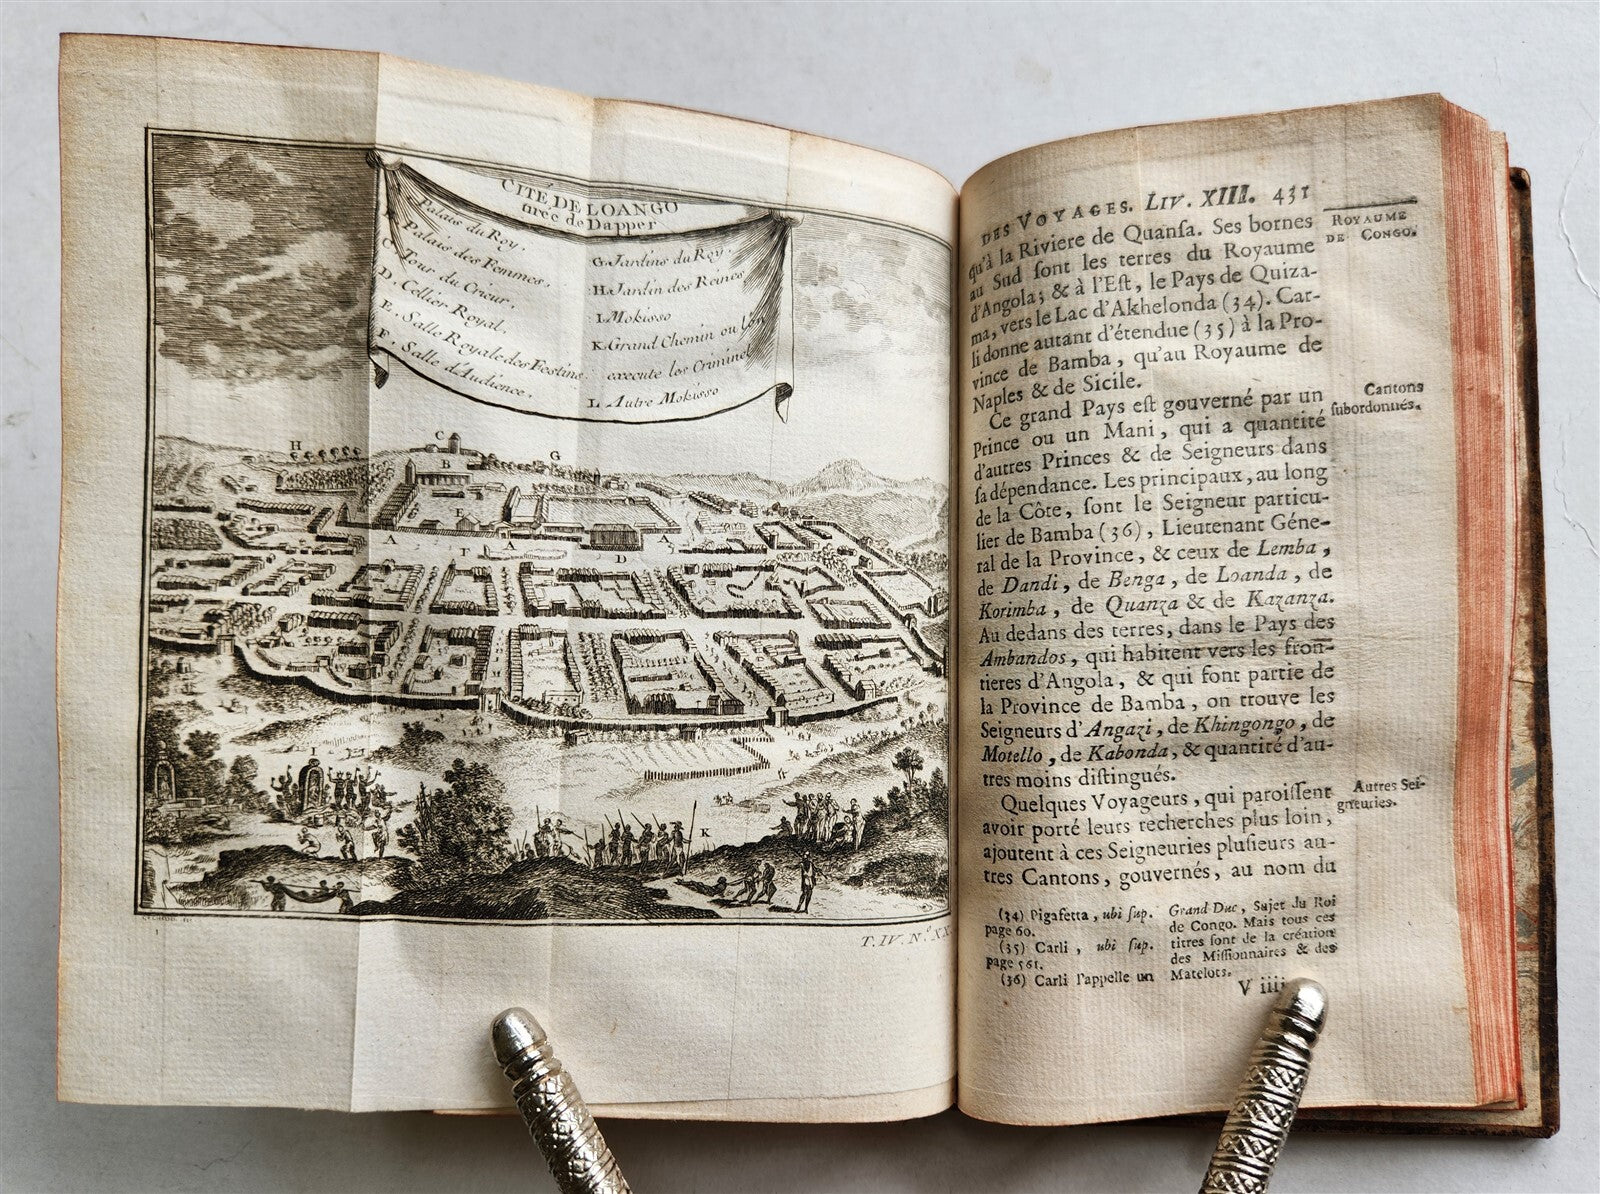 CITÉ DE LOANGO
tirée de Dapper
A. Palais du Roy.
B. Palais des Femmes.
C. Tour du Crieur.
D. Cellier Royal.
E. Salle Royale des Festins.
F. Salle d'Audience.
G. Jardins du Roy.
H. Jardin des Reines
I. Mokisso
K. Grand Chemin ou l'on
execute les Criminel
L. Autre Mokisso
H
C
B
G
E
A
A
A
F
D
I
K
T. IV. N.º XX.
DES VOYAGES. LIV. XIII. 431
ROYAUME
DE CONGO.
qu'à la Riviere de Quansa. Ses bornes
au Sud sont les terres du Royaume
d'Angola; & à l'Est, le Pays de Quiza-
ma, vers le Lac d'Akhelonda (34). Car-
li donne autant d'étendue (35) à la Pro-
vince de Bamba, qu'au Royaume de
Naples & de Sicile.
Cantons
subordonnés.
Ce grand Pays est gouverné par un
Prince ou un Mani, qui a quantité
d'autres Princes & de Seigneurs dans
sa dépendance. Les principaux, au long
de la Côte, sont le Seigneur particu-
lier de Bamba (36), Lieutenant Géne-
ral de la Province, & ceux de Lemba,
de Dandi, de Benga, de Loanda, de
Korimba, de Quanza & de Kazanza.
Au dedans des terres, dans le Pays des
Ambandos, qui habitent vers les fron-
tieres d'Angola, & qui font partie de
la Province de Bamba, on trouve les
Seigneurs d'Angazi, de Khingongo, de
Motello, de Kabonda, & quantité d'au-
tres moins distingués.
Autres Sei-
gneuries.
Quelques Voyageurs, qui paroissent
avoir porté leurs recherches plus loin,
ajoutent à ces Seigneuries plusieurs au-
tres Cantons, gouvernés, au nom du
(34) Pigafetta, ubi sup.
page 60.
(35) Carli, ubi sup.
page 561.
(36) Carli l'appelle un
Grand Duc, Sujet du Roi
de Congo. Mais tous ces
titres sont de la création
des Missionnaires & des
Matelots.
V iiij